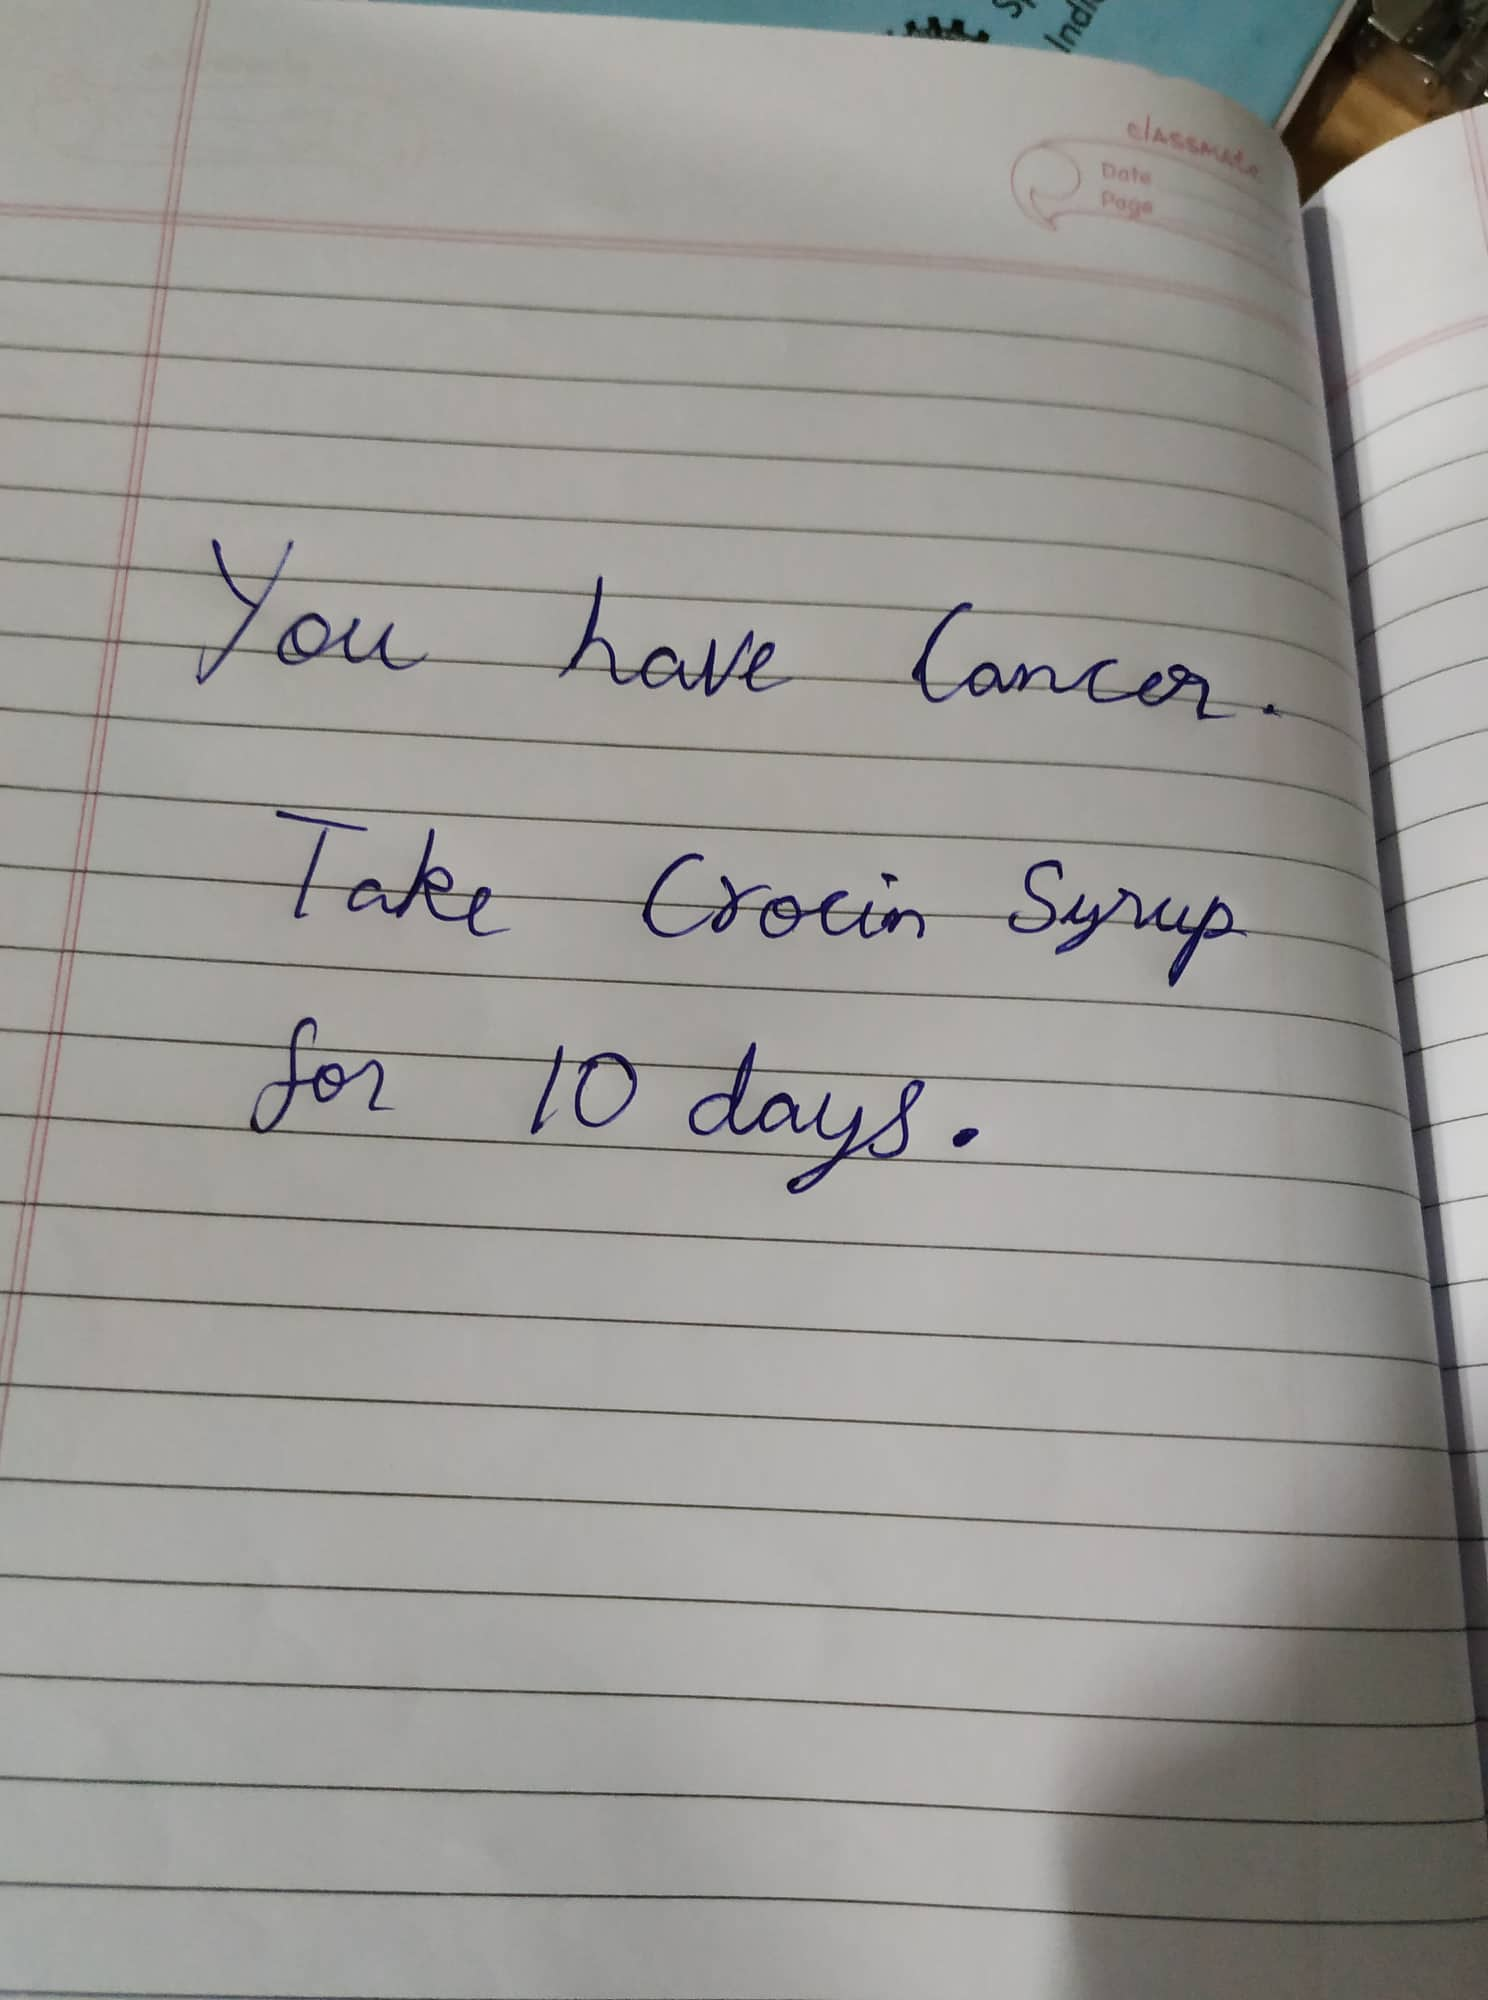 Sp
Indi
classmate
Date
Page
You have Cancer.
Take Crocin Syrup
for 10 days.